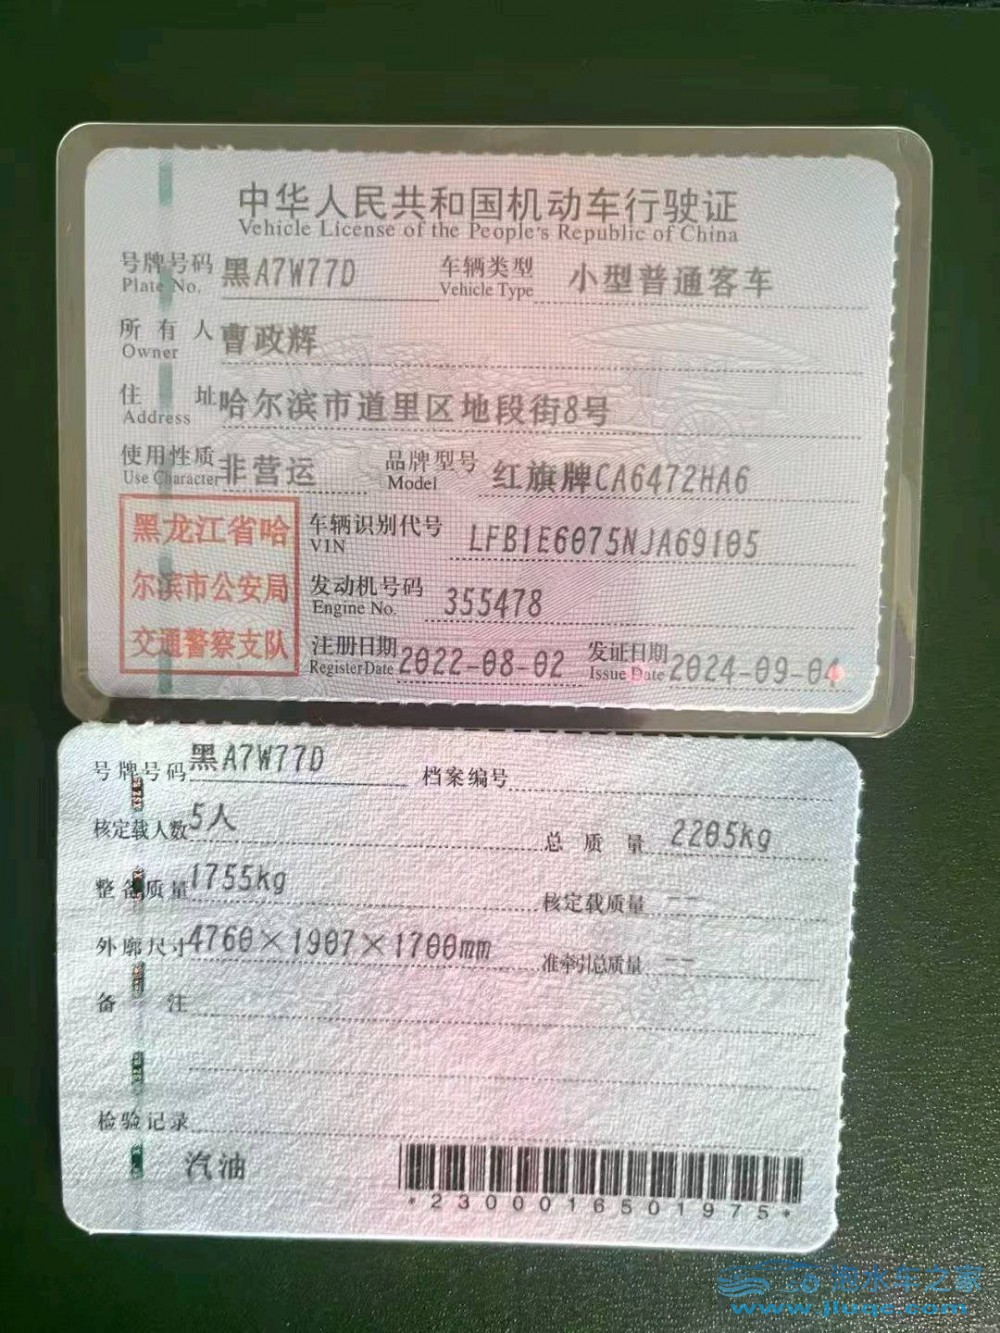 中华人民共和国机动车行驶证
Vehicle License of the People's Republic of China
号牌号码 黑A7W77D 车辆类型 小型普通客车
Plate No. Vehicle Type
所有人 曹政辉
Owner
住址 哈尔滨市道里区地段街8号
Address
使用性质 非营运 品牌型号 红旗牌CA6472HA6
Use Character Model
黑龙江省哈 车辆识别代号 LFB1E6075NJA69105
VIN
尔滨市公安局 发动机号码 355478
Engine No.
交通警察支队 注册日期 2022-08-02 发证日期 2024-09-04
Register Date Issue Date
号牌号码 黑A7W77D 档案编号
核定载人数 5人 总质量 2205kg
整备质量 1755kg 核定载质量 --
外廓尺寸 4760×1907×1700mm 准牵引总质量 --
备注
检验记录
汽油
*2300016501975*
洒水车之家
www.jloqc.com